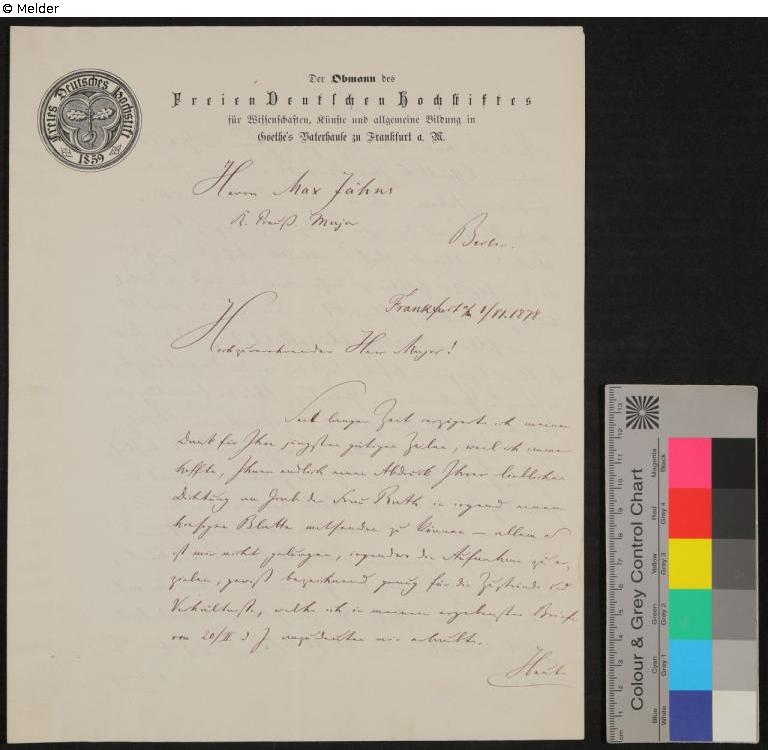 © Melder
Freies Deutsches Hochstift
1859
Der Obmann des
Freien Deutschen Hochstiftes
für Wissenschaften, Künste und allgemeine Bildung in
Goethe's Vaterhause zu Frankfurt a. M.
Herrn Max Jähns
K. Preuß. Major
Berlin.
Frankfurt a/M 1/VI. 1878.
Hochzuverehrender Herr Major!
Seit langer Zeit verzögerte ich meinen
Dank für Ihre jüngsten gütigen Zeilen, weil ich immer
hoffte, Ihnen endlich einen Abdruck Ihrer lieblichen
Dichtung am Grabe der Frau Rath in irgend einem
hiesigen Blatte mitsenden zu können – allein es
ist mir nicht gelungen, irgendwo die Aufnahme zu er-
zielen, gewiß bezeichnend genug für die Zustände
Verhältnisse, welche ich in meinem ergebensten Briefe
vom 20/II d. J. anzudeuten mir erlaubte.
Heute
Colour & Grey Control Chart
Blue Cyan Green Yellow Red Magenta
White Grey 1 Grey 2 Grey 3 Grey 4 Black
cm 1 2 3 4 5 6 7 8 9 10 11 12 13